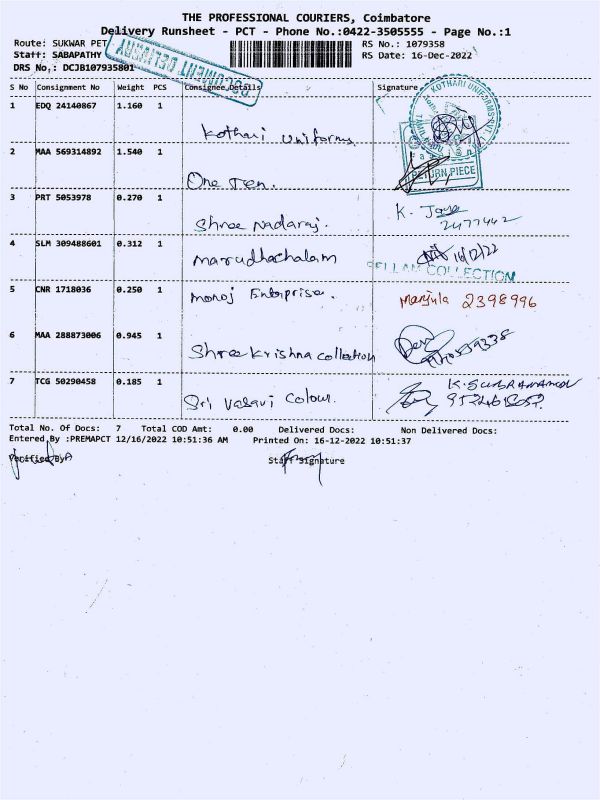 THE PROFESSIONAL COURIERS, Coimbatore
Delivery Runsheet - PCT - Phone No.:0422-3505555 - Page No.:1
Route: SUKWAR PET
RS No.: 1079358
Staff: SABAPATHY
RS Date: 16-Dec-2022
DRS No.: DCJB107935801
DOCUMENT DELIVERY
S No Consignment No Weight PCS Consignee Details Signature
KOTHARI UNIFORMS PVT.
1 EDQ 24140867 1.160 1 Kothari Uniforms
2 MAA 569314892 1.540 1 One Ten.
RETURN PIECE
3 PRT 5053978 0.270 1 Shree Nadaraj. K.
2477442
4 SLM 309488601 0.312 1 Marudhachalam 16/12/22
COLLECTION
5 CNR 1718036 0.250 1 Manoj Enterprise. Manjula 2398996
6 MAA 288873006 0.945 1 Shree Krishna collection
7 TCG 50290458 0.185 1 Sri Vasavi Colour.
Total No. Of Docs: 7 Total COD Amt: 0.00 Delivered Docs: Non Delivered Docs:
Entered By :PREMAPCT 12/16/2022 10:51:36 AM Printed On: 16-12-2022 10:51:37
Verified By
Staff Signature